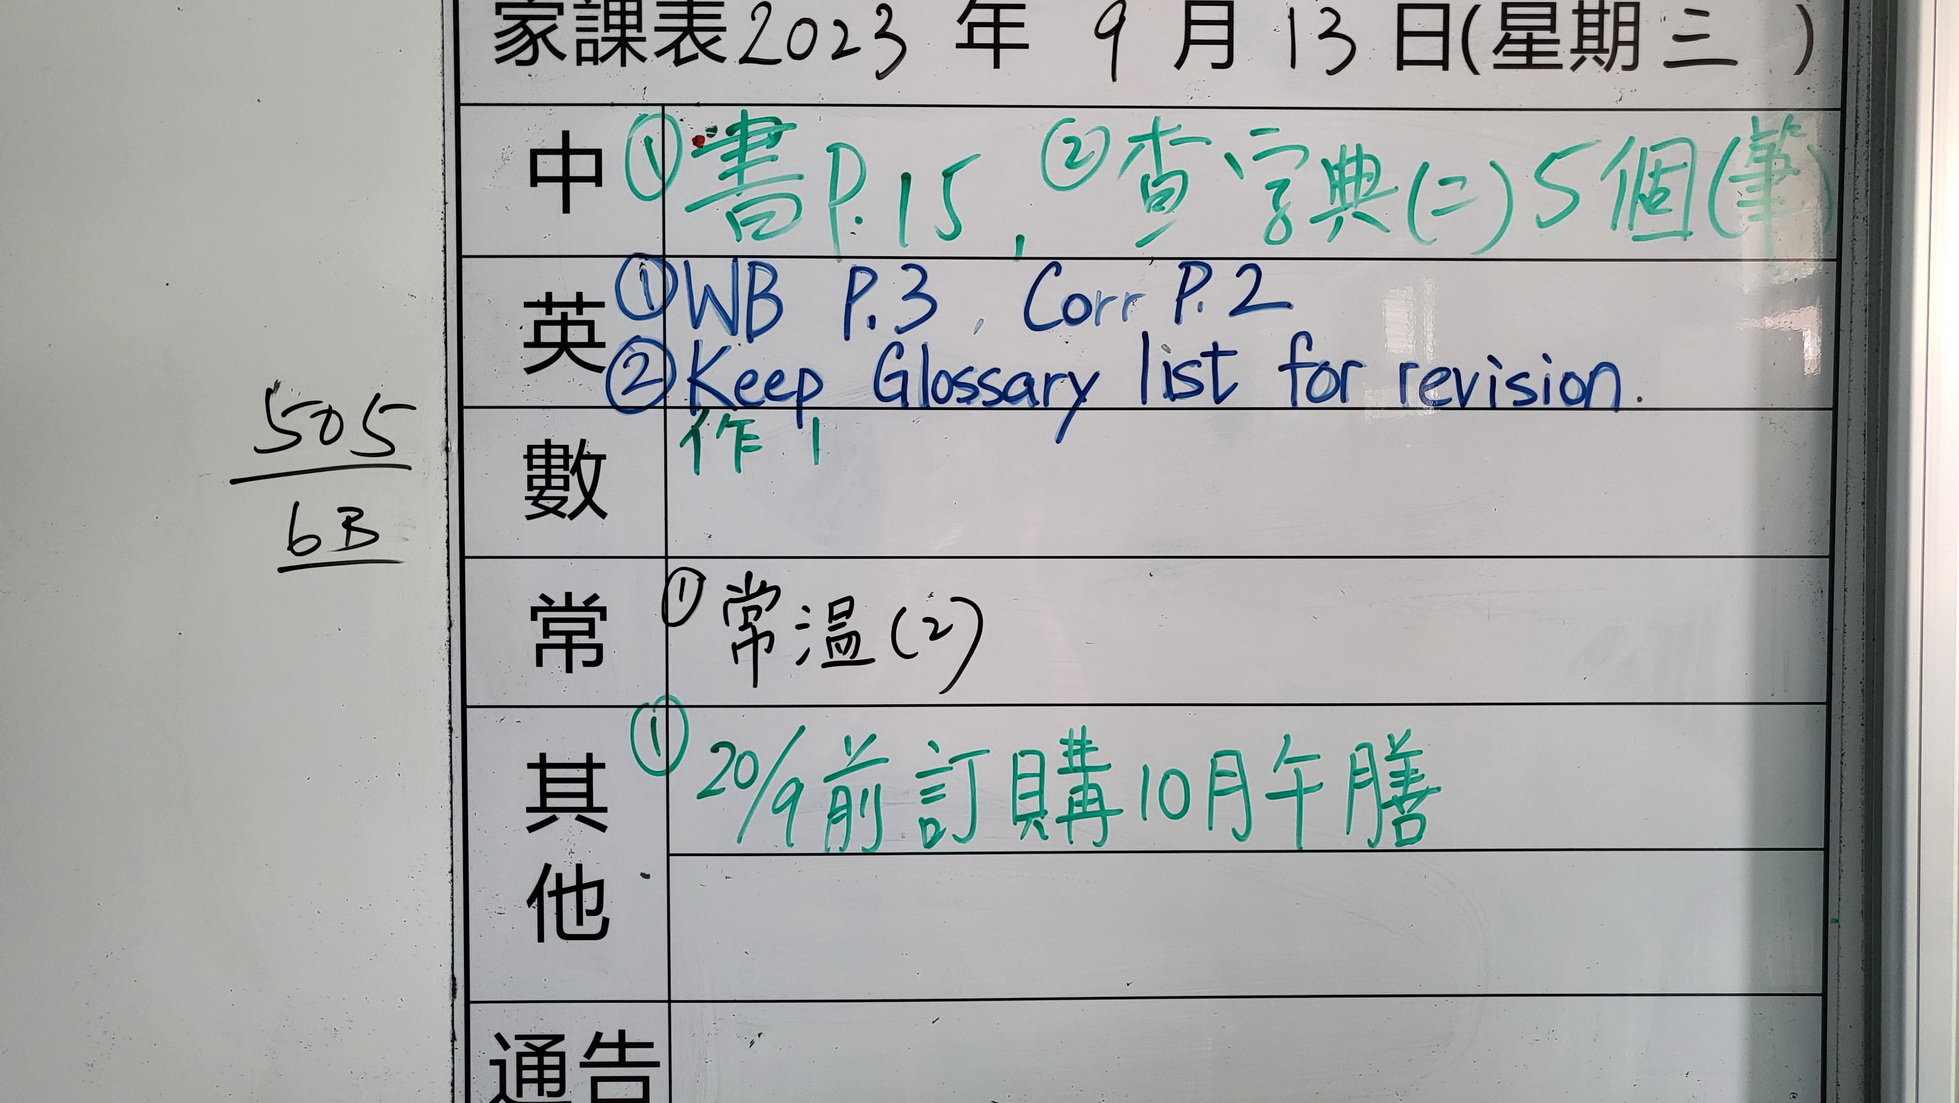 家課表2023年9月13日(星期三)
中 ①書P.15, ②查字典(二)5個(筆)
英 ①WB P.3, Corr P.2
②Keep Glossary list for revision.
數 作1
常 ①常溫(2)
其他 ①20/9前訂購10月午膳
通告
505
6B